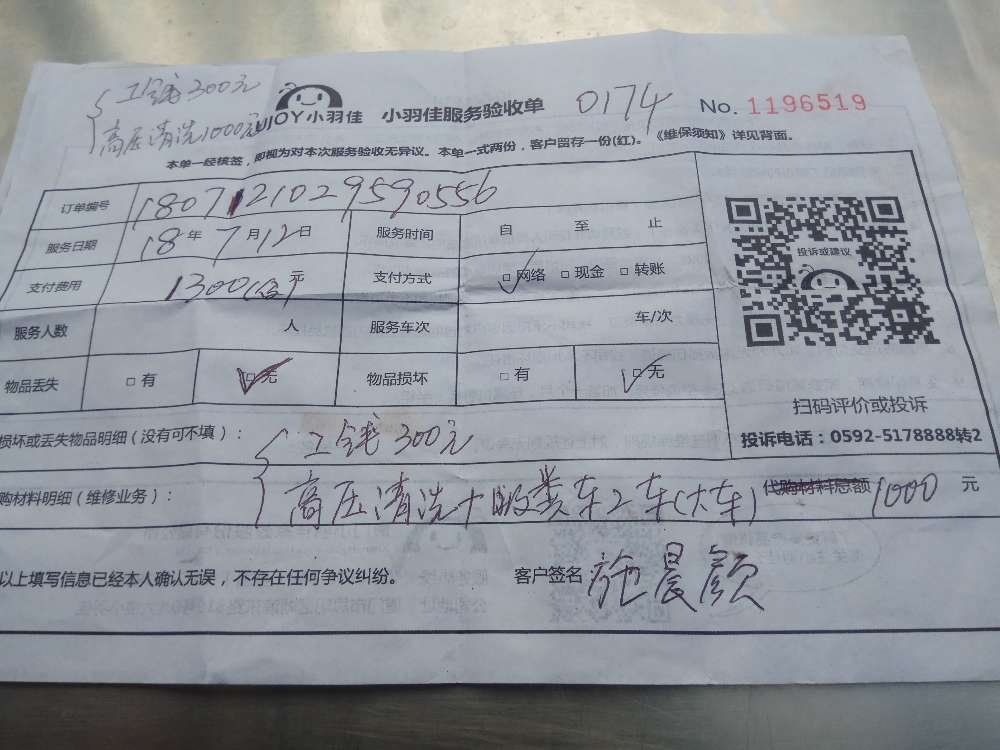 工钱300元
高压清洗1000元
JOY小羽佳 小羽佳服务验收单 0174 No. 1196519
本单一经核签，即视为对本次服务验收无异议。本单一式两份，客户留存一份(红)。《维保须知》详见背面。
订单编号 1807121029590556
服务日期 18年7月12日 服务时间 自 至 止
支付费用 1300 元 支付方式 □网络 □现金 □转账
服务人数 人 服务车次 车/次
物品丢失 □有 □无 物品损坏 □有 □无
投诉或建议
扫码评价或投诉
投诉电话：0592-5178888转2
损坏或丢失物品明细（没有可不填）： 工钱300元
购材料明细（维修业务）： 高压清洗+吸粪车2车(大车) 代购材料总额 1000 元
以上填写信息已经本人确认无误，不存在任何争议纠纷。 客户签名 施晨颜